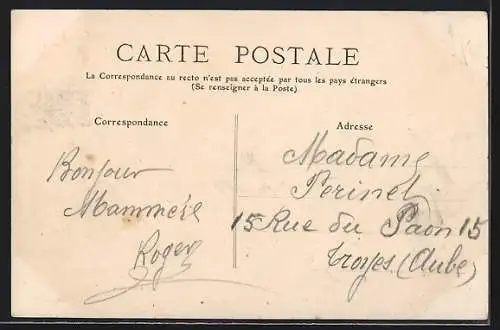 CARTE POSTALE
La Correspondance au recto n'est pas acceptée par tous les pays étrangers
(Se renseigner à la Poste)
Correspondance
Bonjour
Mammère
Roger
Adresse
Madame
Perinet
15 Rue du Paon 15
Troyes (Aube)